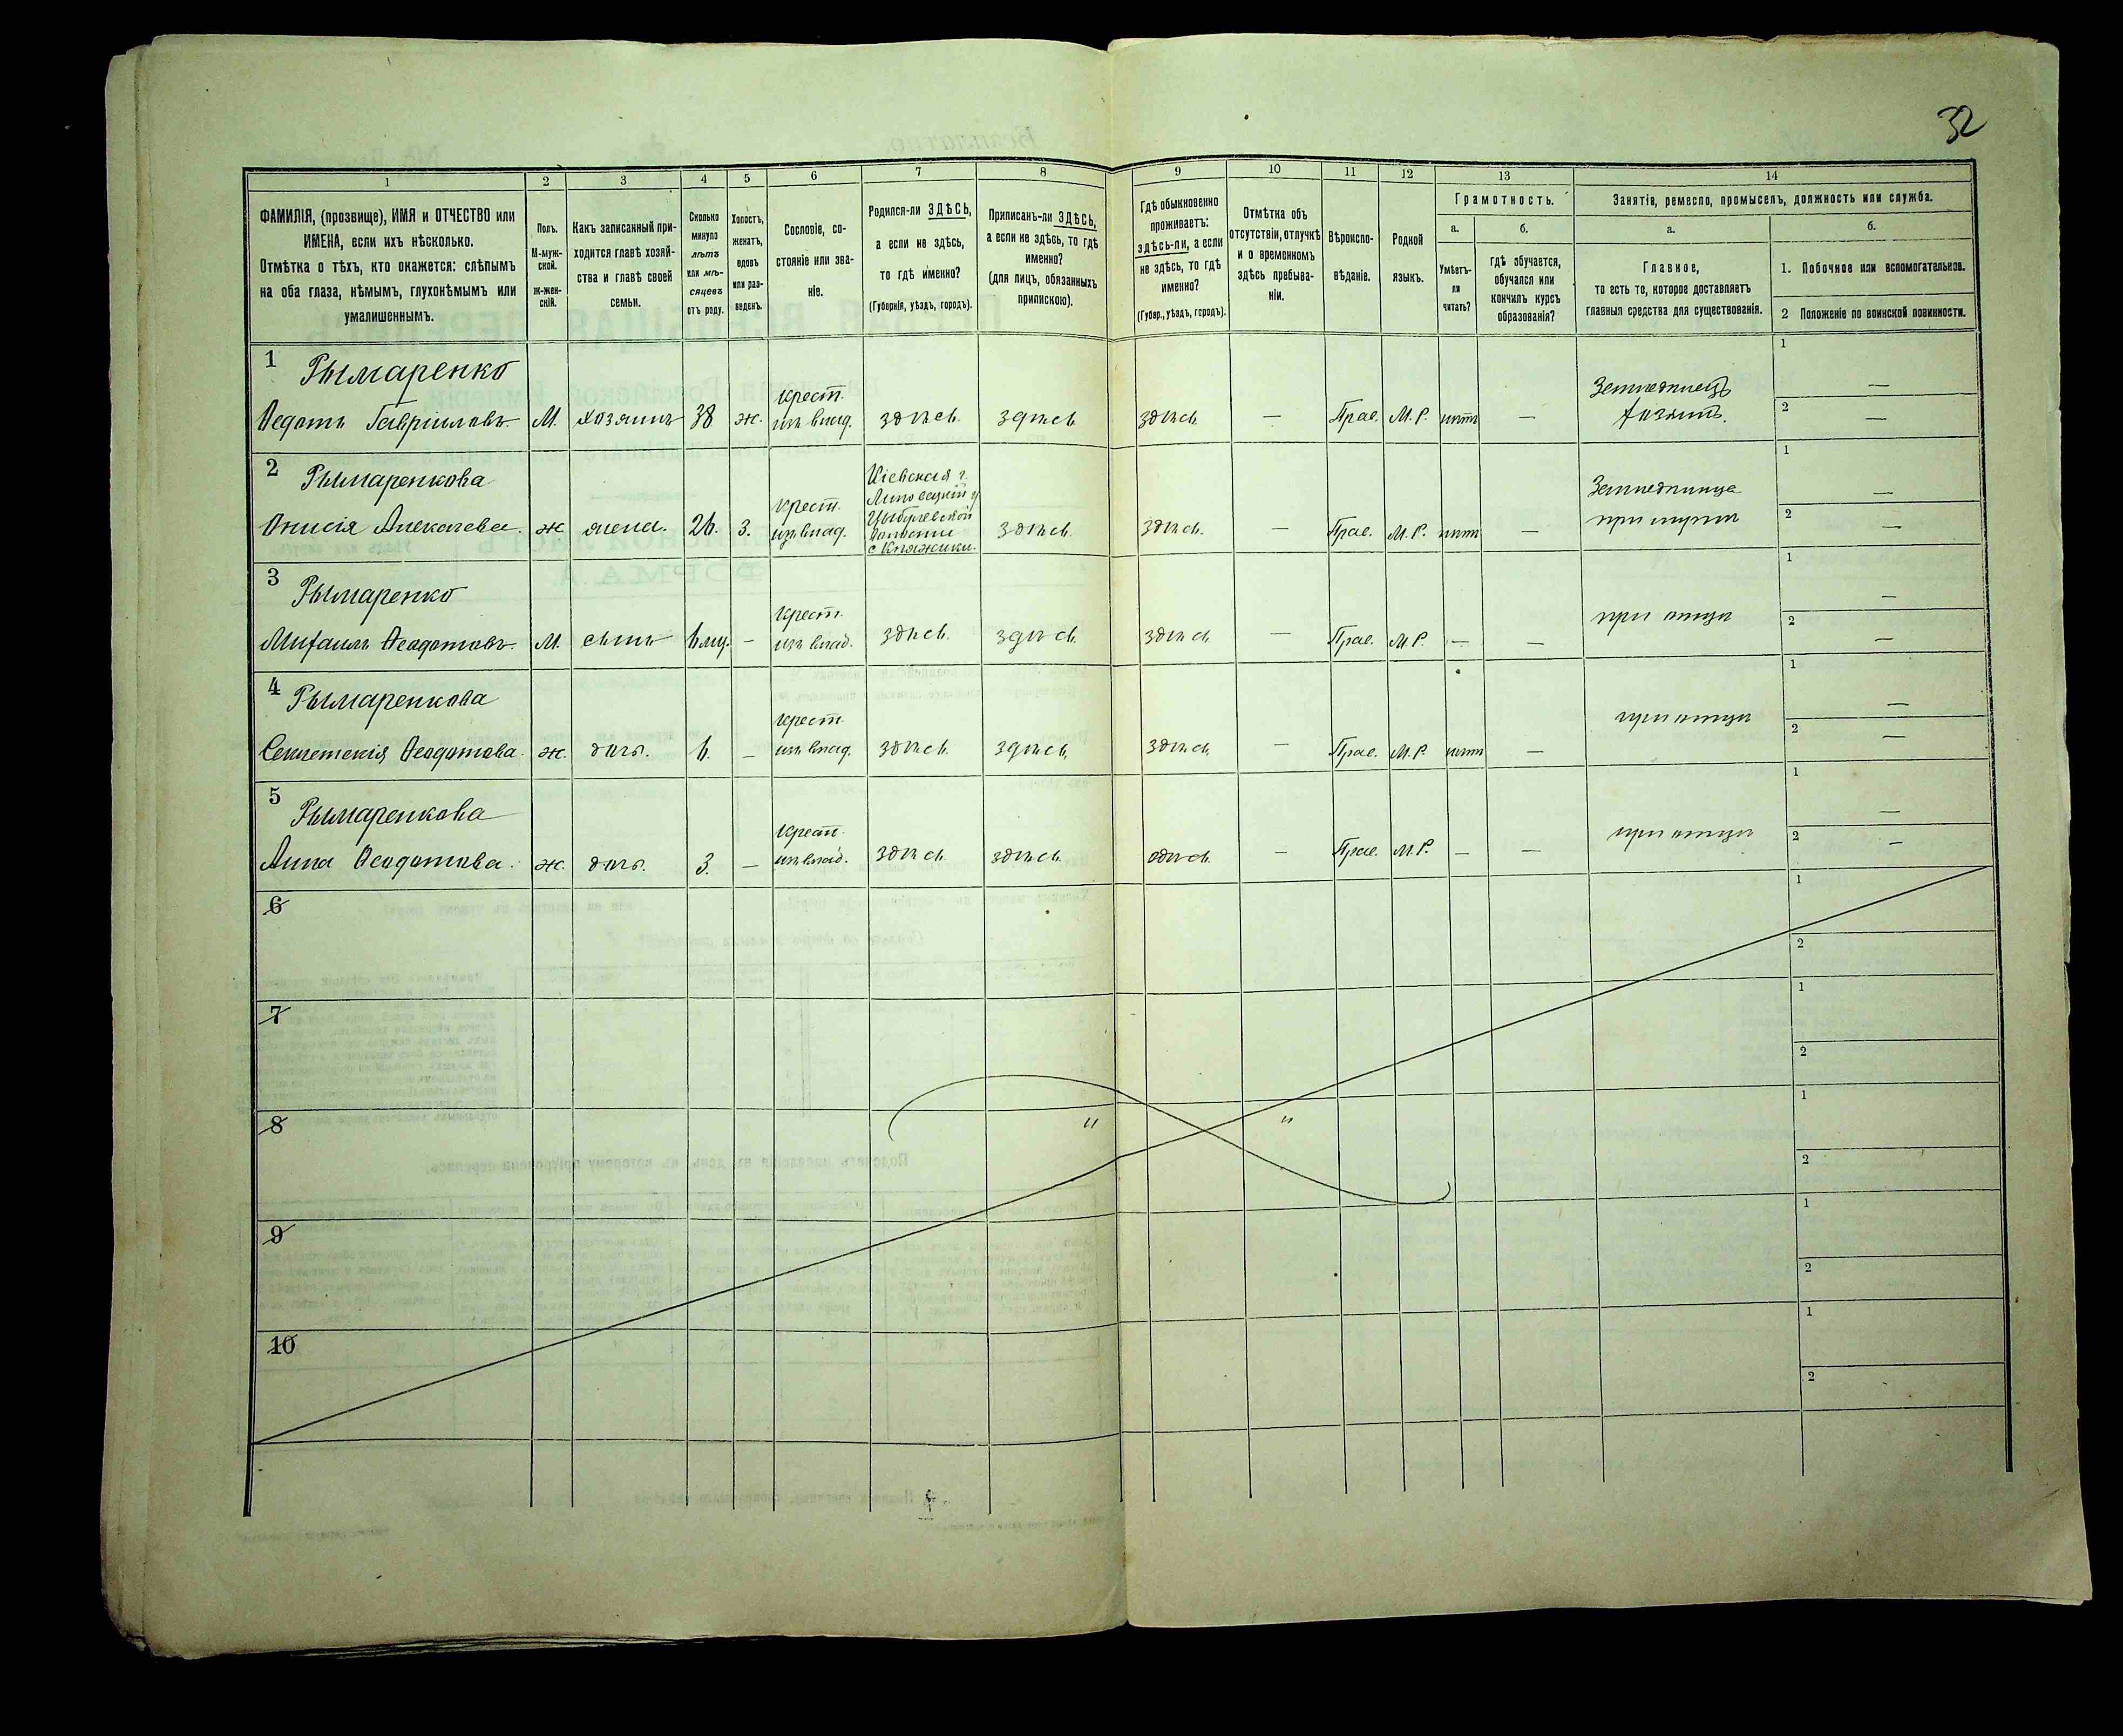 32
1
2
3
4
5
6
7
8
9
10
11
12
13
14
ФАМИЛІЯ, (прозвище), ИМЯ и ОТЧЕСТВО или
ИМЕНА, если ихъ нѣсколько.
Отмѣтка о тѣхъ, кто окажется: слѣпымъ
на оба глаза, нѣмымъ, глухонѣмымъ или
умалишеннымъ.
Полъ.
М-муж-
ской.
ж-жен-
скій.
Какъ записанный при-
ходится главѣ хозяй-
ства и главѣ своей
семьи.
Сколько
минуло
лѣтъ
или мѣ-
сяцевъ
отъ роду.
Холостъ,
женатъ,
вдовъ
или раз-
веденъ.
Сословіе, со-
стояніе или зва-
ніе.
Родился-ли ЗДѢСЬ,
а если не здѣсь,
то гдѣ именно?
(Губернія, уѣздъ, городъ).
Приписанъ-ли ЗДѢСЬ,
а если не здѣсь, то гдѣ
именно?
(для лицъ, обязанныхъ
припискою).
Гдѣ обыкновенно
проживаетъ:
здѣсь-ли, а если
не здѣсь, то гдѣ
именно?
(Губер., уѣздъ, городъ).
Отмѣтка объ
отсутствіи, отлучкѣ
и о временномъ
здѣсь пребыва-
ніи.
Вѣроиспо-
вѣданіе.
Родной
языкъ.
Грамотность.
а.
Умѣетъ-
ли
читать?
б.
гдѣ обучается,
обучался или
кончилъ курсъ
образованія?
Занятія, ремесло, промыселъ, должность или служба.
а.
Главное,
то есть то, которое доставляетъ
главныя средства для существованія.
б.
1. Побочное или вспомогательное.
2 Положеніе по воинской повинности.
1 Рымаренко
Федотъ Гавріиловъ М. хозяинъ 38 ж. крест. изъ влад. здѣсь. здѣсь здѣсь — Прав. М. Р. нѣтъ — Земледѣлецъ хозяинъ. 1 — 2 —
2 Рымаренкова
Алексѣева ж жена. 26. з. крест. изъ влад. Кіевская г.
Липовецкій у
Цыбулевской
волости
с Княжики. здѣсь здѣсь. — Прав. М. Р. нѣтъ — Земледѣлица при мужѣ 1 — 2 —
3 Рымаренко
Михаилъ Феодотовъ М. сынъ 6 мѣ. — крест. изъ влад. здѣсь здѣсь. здѣсь — Прав. М. Р. — — при отцѣ 1 — 2 —
4 Рымаренкова
Феодотова ж. дочь. 6. — крест. изъ влад. здѣсь. здѣсь, здѣсь — Прав. М. Р. нѣтъ — при отцѣ 1 — 2 —
5 Рымаренкова
Анна Феодотова. ж. дочь. 3. — крест. изъ влад. здѣсь здѣсь. здѣсь. — Прав. М. Р. — — при отцѣ 1 — 2 —
6 1
2
7 1
2
8 " " 1
2
9 1
2
10 1
2